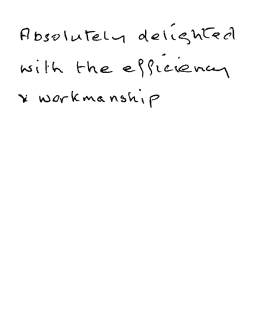 Absolutely delighted
with the efficiency
& workmanship